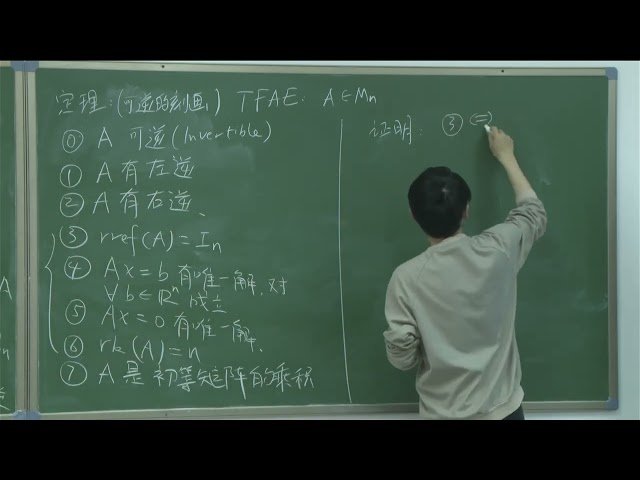 定理:(可逆的刻画) TFAE. A∈Mn
⓪ A 可逆(Invertible)
① A 有左逆
② A 有右逆、
③ rref(A)=In
④ Ax=b 有唯一解,对
∀b∈ℝⁿ 成立
⑤ Ax=0 有唯一解.
⑥ rk(A)=n
⑦ A 是初等矩阵的乘积
证明: ③